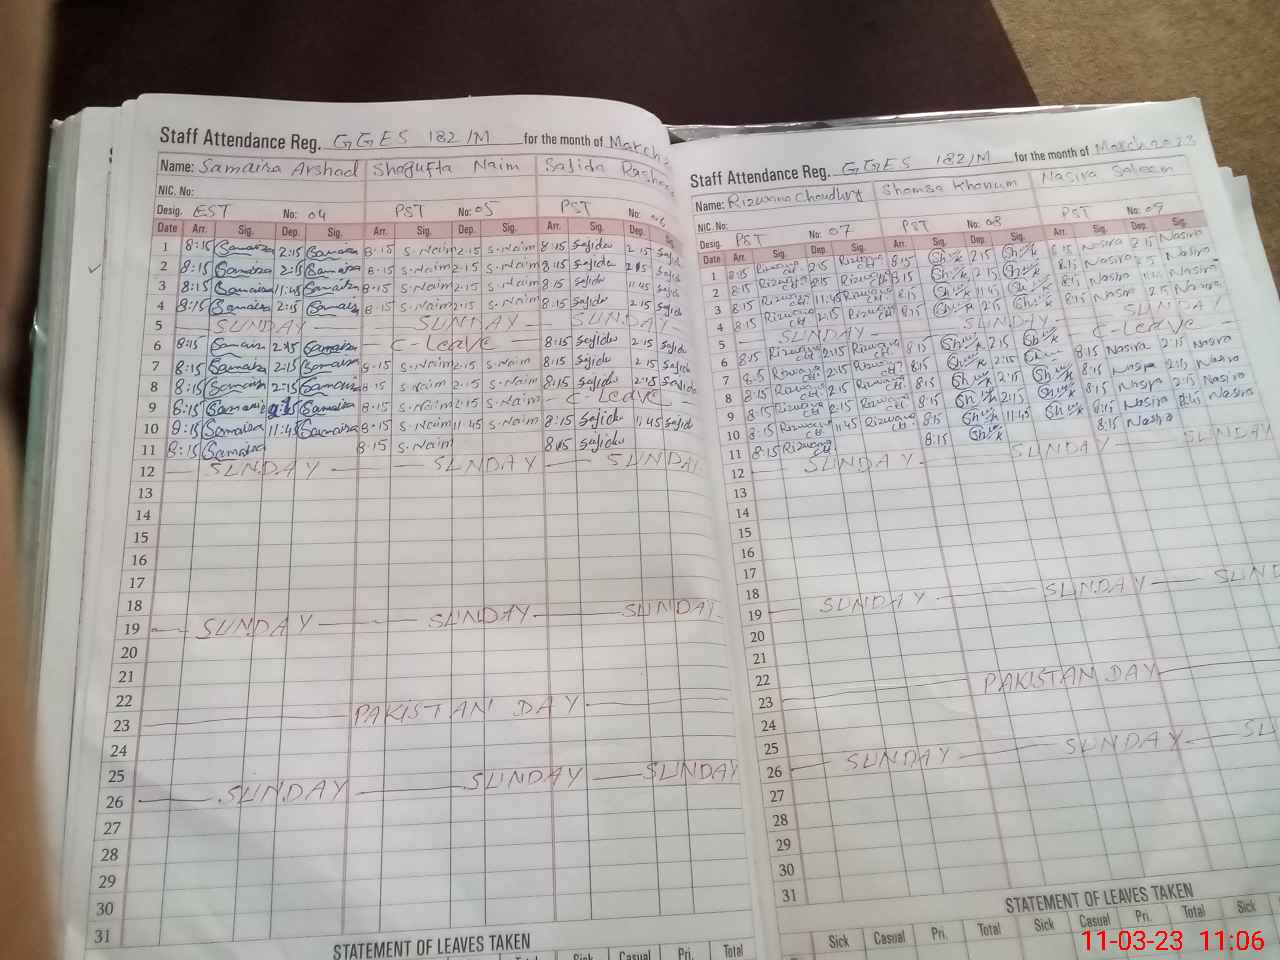 Staff Attendance Reg. GGES 182/M for the month of March
Name: Samaira Arshad Shagufta Naim Sajida Rasheed
NIC. No:
Desig. EST No: 04 PST No: 05 PST No:
Date Arr. Sig. Dep. Sig. Arr. Sig. Dep. Sig. Arr. Sig. Dep. Sig.
1 8:15 Samaira 2:15 Samaira 8.15 S.Naim 2.15 S.Naim 8:15 Sajida 2.15 Sajida
2 8:15 Samaira 2:15 Samaira 8.15 S.Naim 2.15 S.Naim 8:15 Sajida 2.15 Sajida
3 8:15 Samaira 11:45 Samaira 8.15 S.Naim 2.15 S.Naim 8:15 Sajida 11.45 Sajida
4 8:15 Samaira 2:15 Samaira 8.15 S.Naim 2.15 S.Naim 8:15 Sajida 2.15 Sajida
5 SUNDAY SUNDAY SUNDAY
6 8:15 Samaira 2:15 Samaira C-Leave 8:15 Sajida 2.15 Sajida
7 8:15 Samaira 2:15 Samaira 8.15 S.Naim 2.15 S.Naim 8:15 Sajida 2.15 Sajida
8 8:15 Samaira 2:15 Samaira 8.15 S.Naim 2.15 S.Naim 8:15 Sajida 2.15 Sajida
9 8:15 Samaira Samaira 8.15 S.Naim 2.15 S.Naim C-Leave
10 8:15 Samaira 11:45 Samaira 8.15 S.Naim 11.45 S.Naim 8:15 Sajida 11.45 Sajida
11 8:15 Samaira 8.15 S.Naim 8:15 Sajida
12 SUNDAY SUNDAY SUNDAY
13
14
15
16
17
18
19 SUNDAY SUNDAY SUNDAY
20
21
22
23 PAKISTAN DAY
24
25
26 SUNDAY SUNDAY SUNDAY
27
28
29
30
31
STATEMENT OF LEAVES TAKEN
Sick Casual Pri. Total
Staff Attendance Reg. GGES 182/M for the month of March 2023
Name: Rizwana Choudhry Shamsa Khanum Nasira Saleem
NIC. No:
Desig. PST No: 07 PST No: 08 PST No: 09
Date Arr. Sig. Dep. Sig. Arr. Sig. Dep. Sig. Arr. Sig. Dep. Sig.
1 8:15 Rizwana CH. 2:15 Rizwana CH. 8:15 2:15 8:15 Nasira 2:15 Nasira
2 8:15 Rizwana CH. 2:15 Rizwana CH. 8:15 2:15 8:15 Nasira 2:15 Nasira
3 8:15 Rizwana CH. 11:45 Rizwana CH. 8:15 11:45 8:15 Nasira 11:45 Nasira
4 8:15 Rizwana CH. 2:15 Rizwana CH. 8:15 2:15 8:15 Nasira 2:15 Nasira
5 SUNDAY SUNDAY SUNDAY
6 8:15 Rizwana CH. 2:15 Rizwana CH. 8:15 2:15 C-Leave
7 8:15 Rizwana CH. 2:15 Rizwana CH. 8:15 2:15 8:15 Nasira 2:15 Nasira
8 8:15 Rizwana CH. 2:15 Rizwana CH. 8:15 2:15 8:15 Nasira 2:15 Nasira
9 8:15 Rizwana CH. 2:15 Rizwana CH. 8:15 2:15 8:15 Nasira 2:15 Nasira
10 8:15 Rizwana CH. 11:45 Rizwana CH. 8:15 11:45 8:15 Nasira Nasira
11 8:15 Rizwana CH. 8:15 8:15 Nasira
12 SUNDAY SUNDAY SUNDAY
13
14
15
16
17
18
19 SUNDAY SUNDAY SUND
20
21
22
23 PAKISTAN DAY
24
25
26 SUNDAY SUNDAY SU
27
28
29
30
31
STATEMENT OF LEAVES TAKEN
Sick Casual Pri. Total Sick Casual Pri. Total Sick
11-03-23 11:06